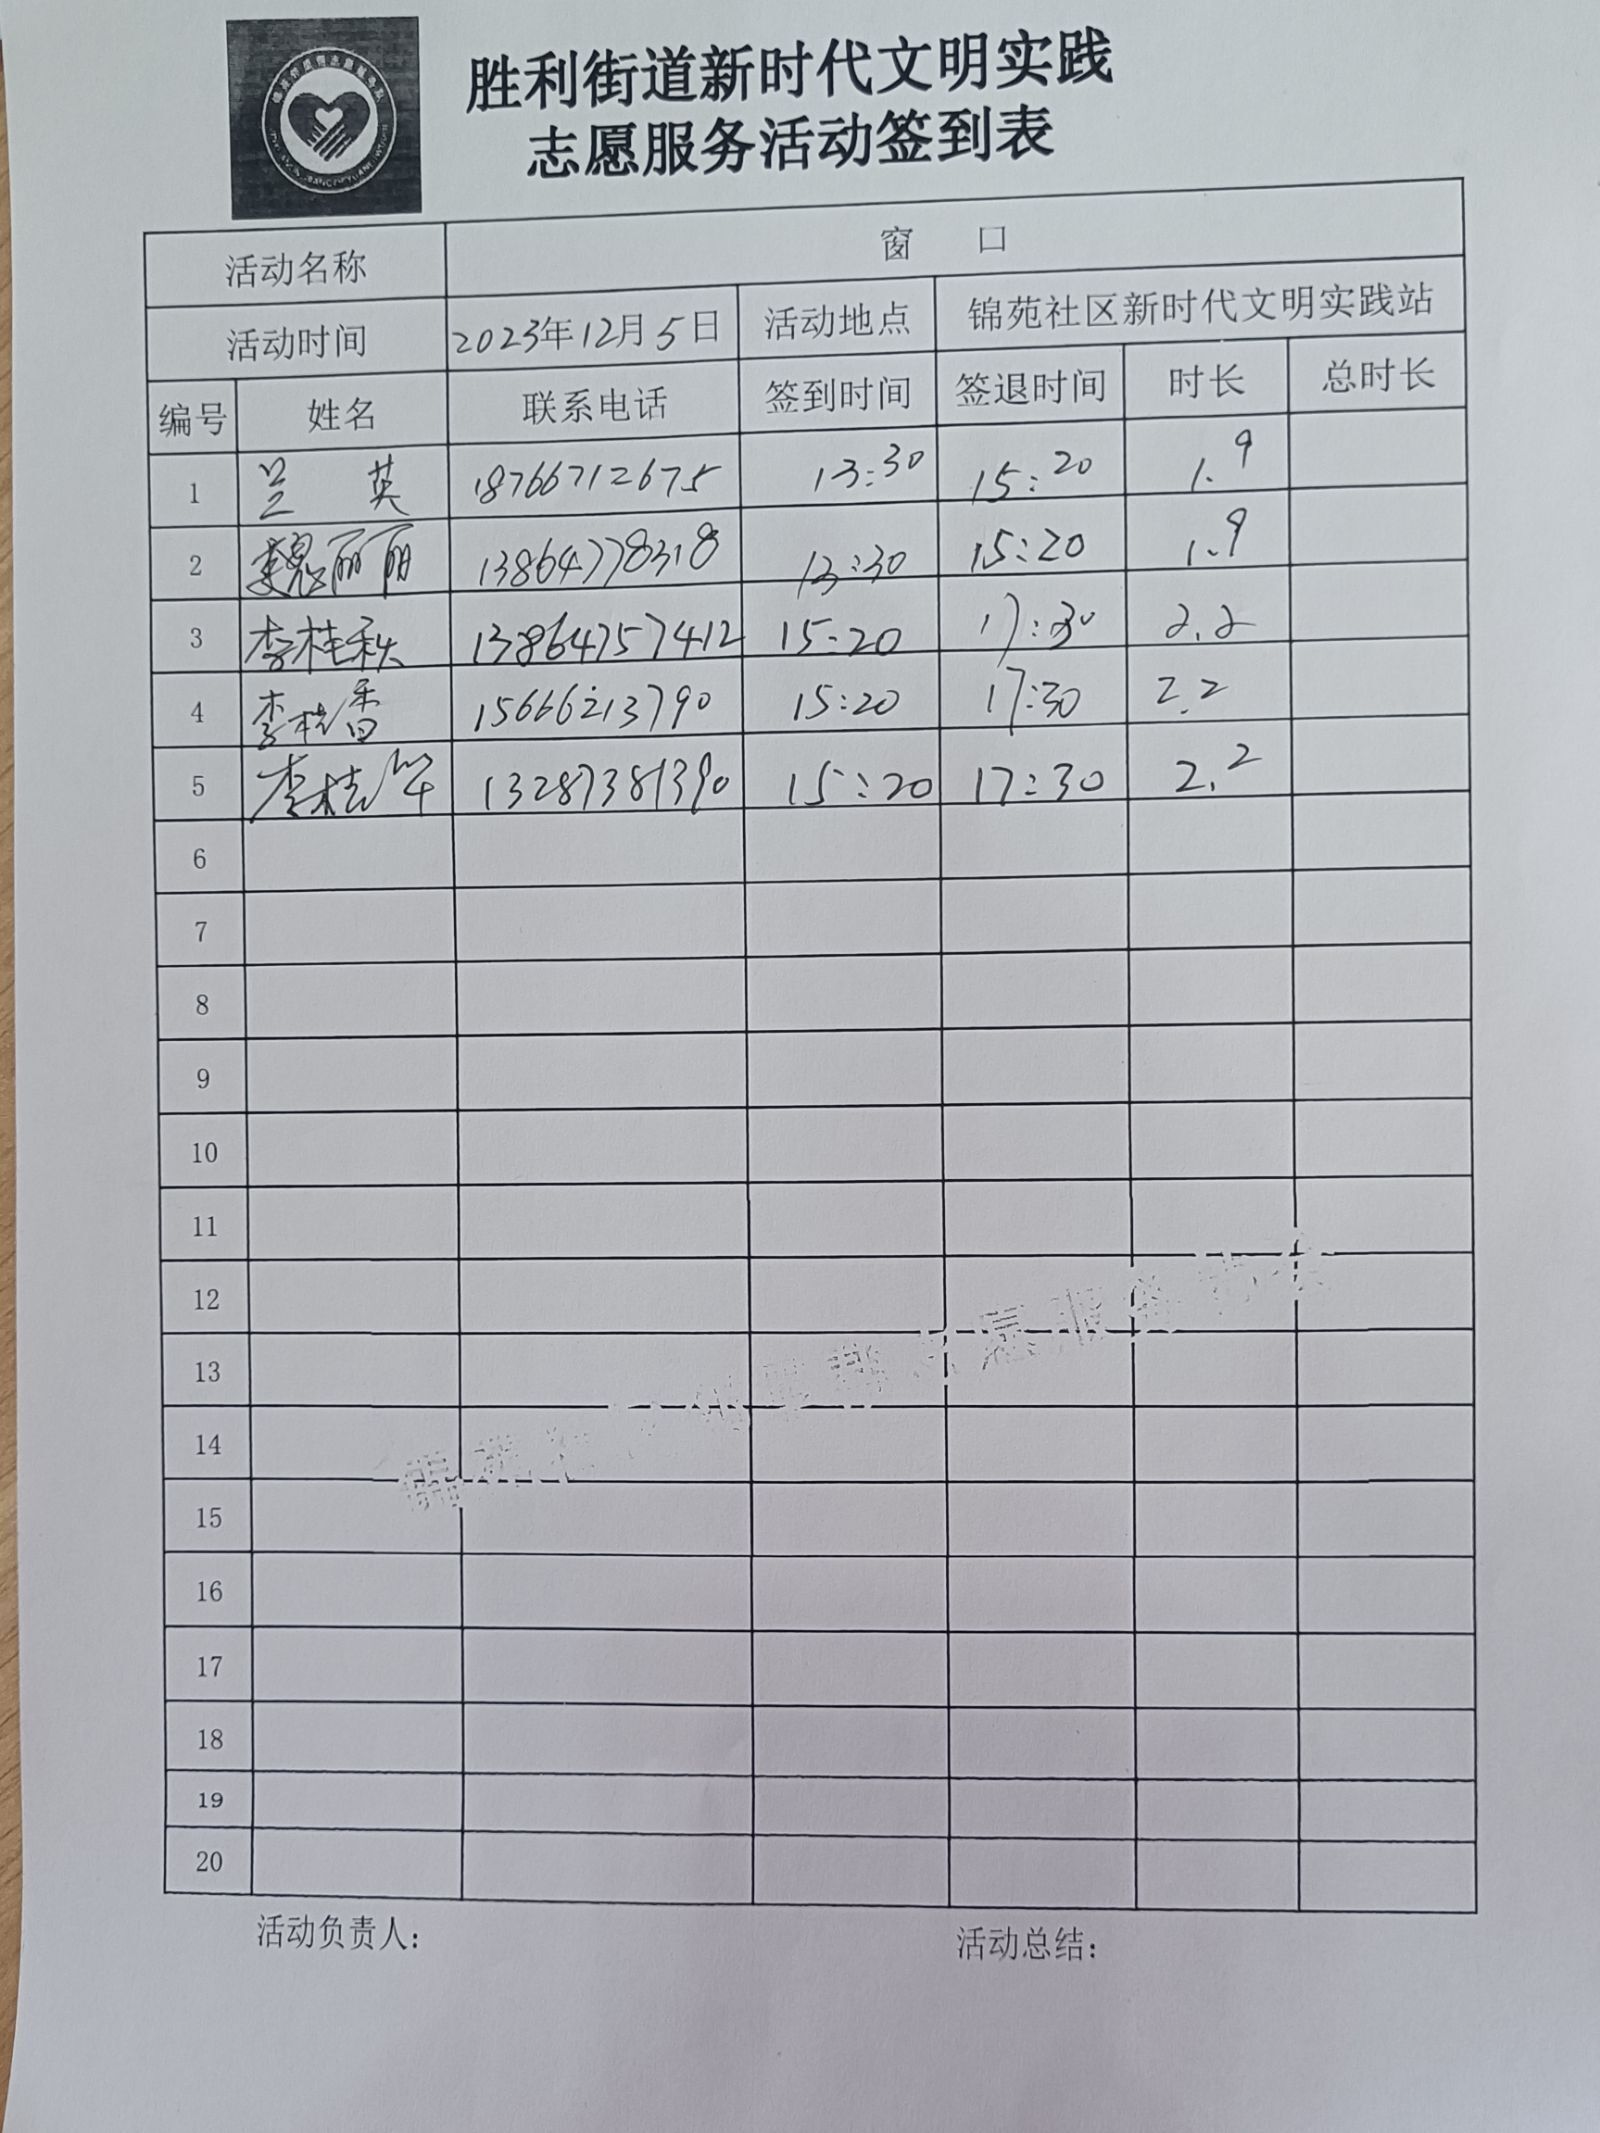 胜利街道新时代文明实践
志愿服务活动签到表
活动名称 窗 口
活动时间 2023年12月5日 活动地点 锦苑社区新时代文明实践站
编号 姓名 联系电话 签到时间 签退时间 时长 总时长
1 兰 英 18766712675 13:30 15:20 1.9
2 魏丽丽 13864778318 13:30 15:20 1.9
3 李桂秋 13864757412 15:20 17:30 2.2
4 李桂香 15666213790 15:20 17:30 2.2
5 李桂华 13287381390 15:20 17:30 2.2
6
7
8
9
10
11
12
13
14
15
16
17
18
19
20
活动负责人: 活动总结: